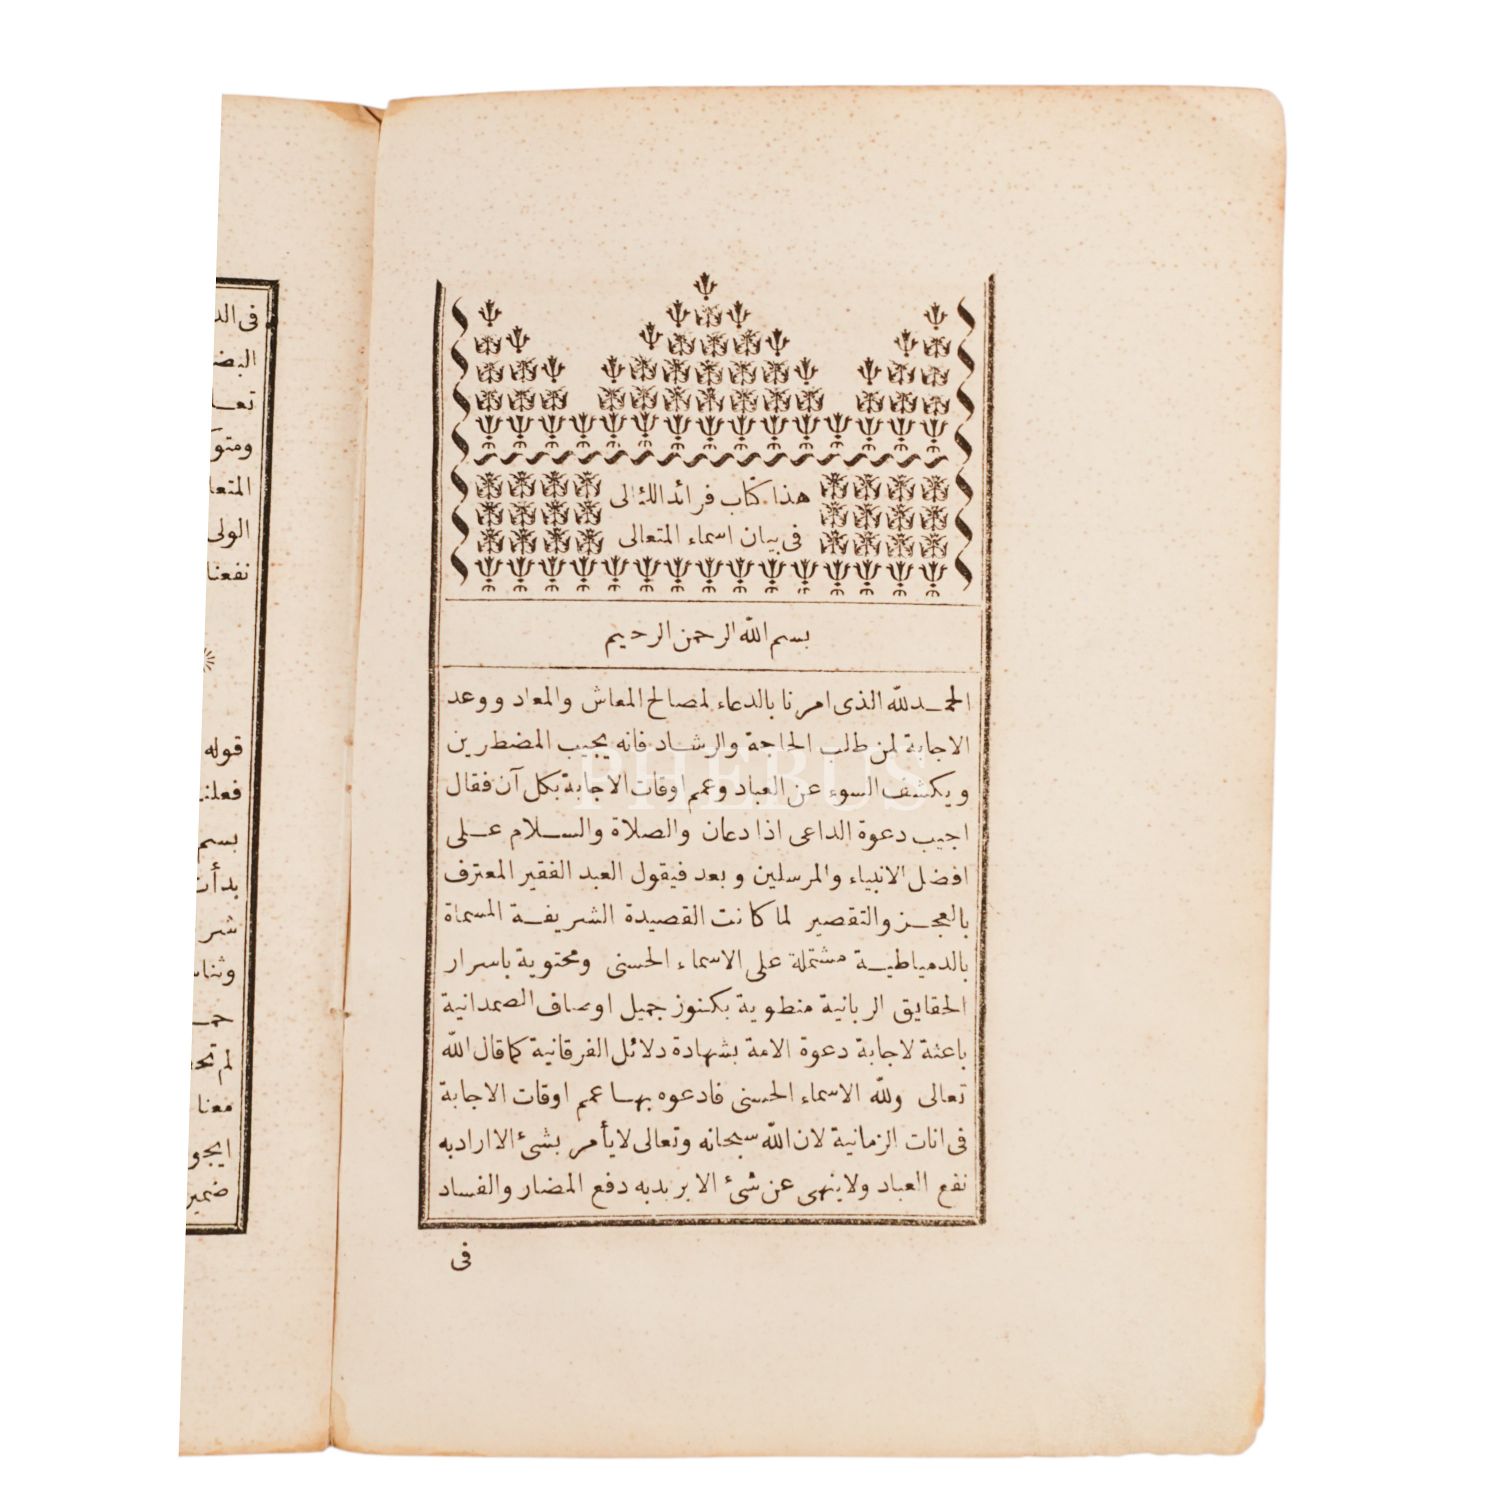 هذا كتاب فرائد اللئالى
فى بيان اسماء المتعالى
بسم الله الرحمن الرحيم
الحمد لله الذى امرنا بالدعاء لمصالح المعاش والمعاد ووعد
الاجابة لمن طلب الحاجة والرشاد فانه يجيب المضطرين
ويكشف السوء عن العباد وعمم اوقات الاجابة بكل آن فقال
اجيب دعوة الداعى اذا دعان والصلاة والسلام على
افضل الانبياء والمرسلين وبعد فيقول العبد الفقير المعترف
بالعجز والتقصير لما كانت القصيدة الشريفة المسماة
بالدمياطية مشتملة على الاسماء الحسنى ومحتوية باسرار
الحقايق الربانية منطوية بكنوز جميل اوصاف الصمدانية
باعثة لاجابة دعوة الامة بشهادة دلائل الفرقانية كما قال الله
تعالى ولله الاسماء الحسنى فادعوه بها عمم اوقات الاجابة
فى انات الزمانية لان الله سبحانه وتعالى لا يأمر بشئ الا اراد به
نفع العباد ولا ينهى عن شئ الا يريد به دفع المضار والفساد
فى
PHEBUS
فى
ومتو
المتعا
الولى
نفعنا
قوله
بسم
شر
لم تح
معنا